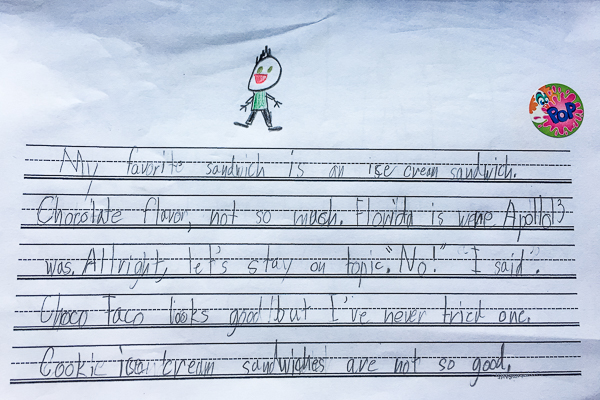 POP
My favorite sandwich is an ice cream sandwich.
Chocolate flavor, not so much. Florida is were Apollo13
was. Allright, let's stay on topic. "No!" "I said".
Choco Taco looks good but I've never tried one.
Cookie ice cream sandwiches are not so good.